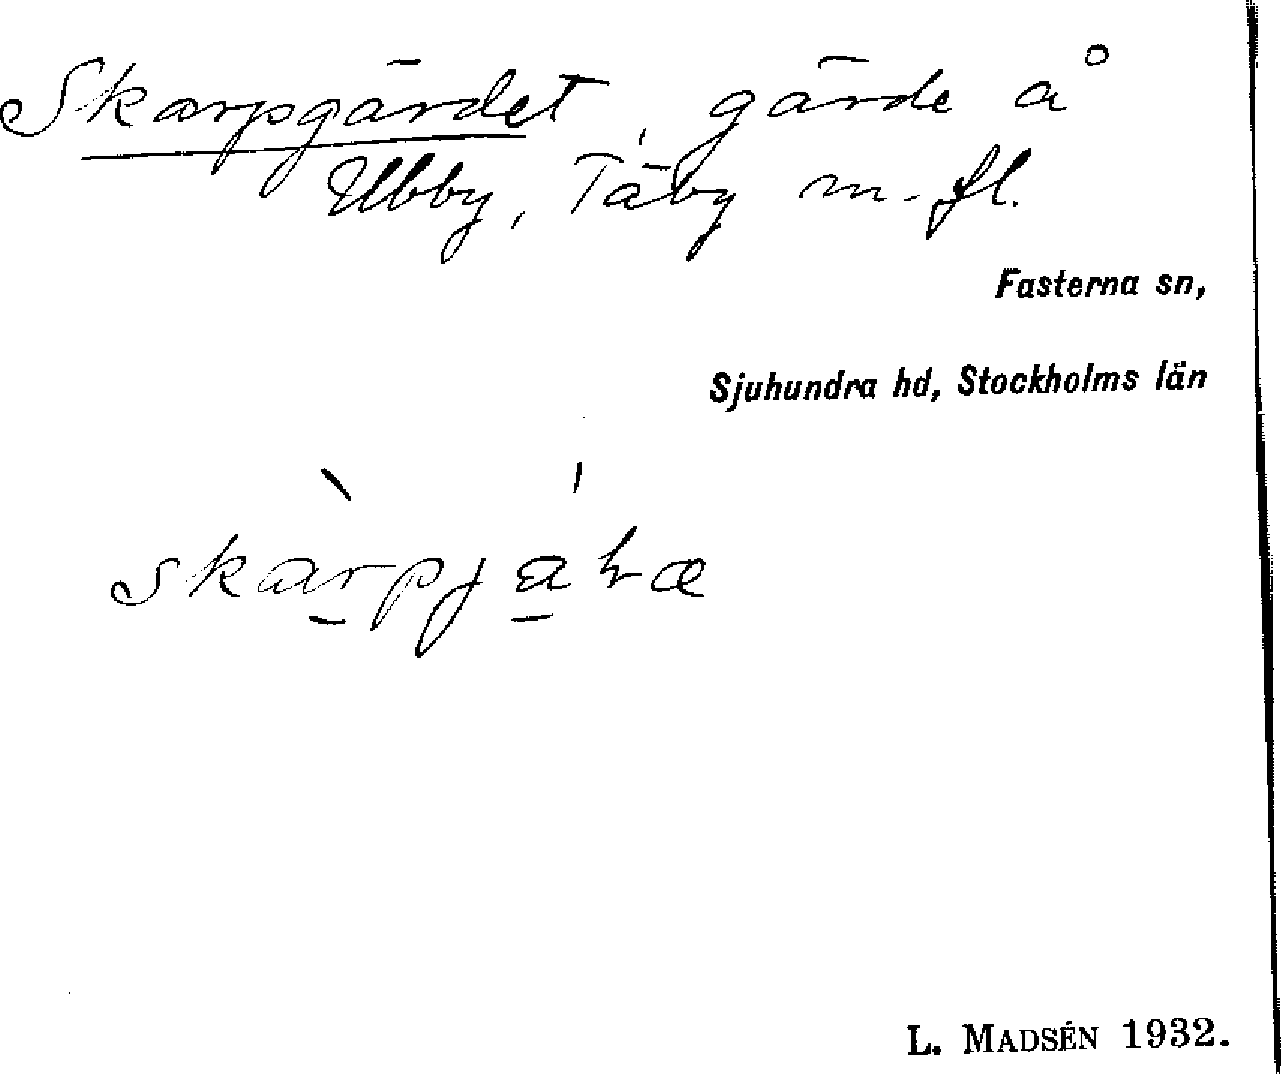 Skarpgärdet, gärde å
Ubby, Täby m. fl.
Fasterna sn,
Sjuhundra hd, Stockholms län
L. MADSÉN 1932.